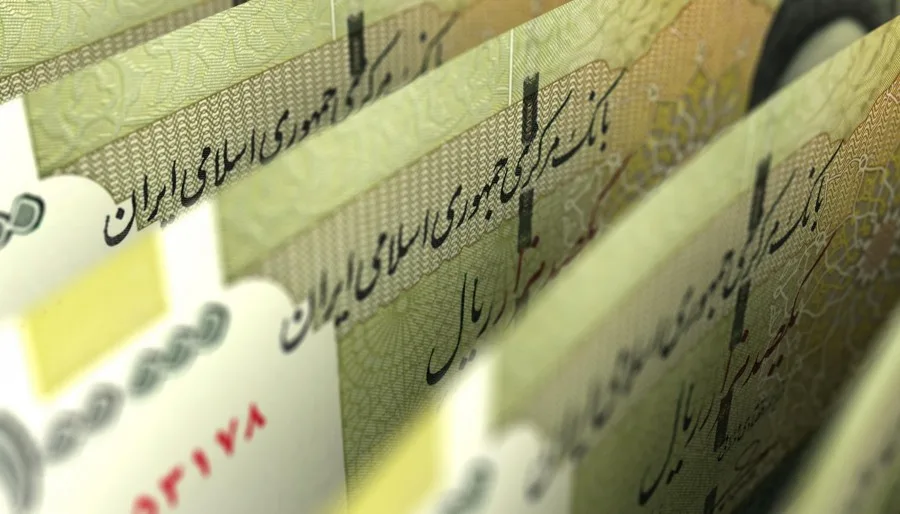 بانک مرکزی جمهوری اسلامی ایران
بانک مرکزی جمهوری اسلامی ایران
یکصد هزار ریال
بانک مرکزی جمهوری اسلامی ایران
یکصد هزار ریال
۵۳۱۷۸